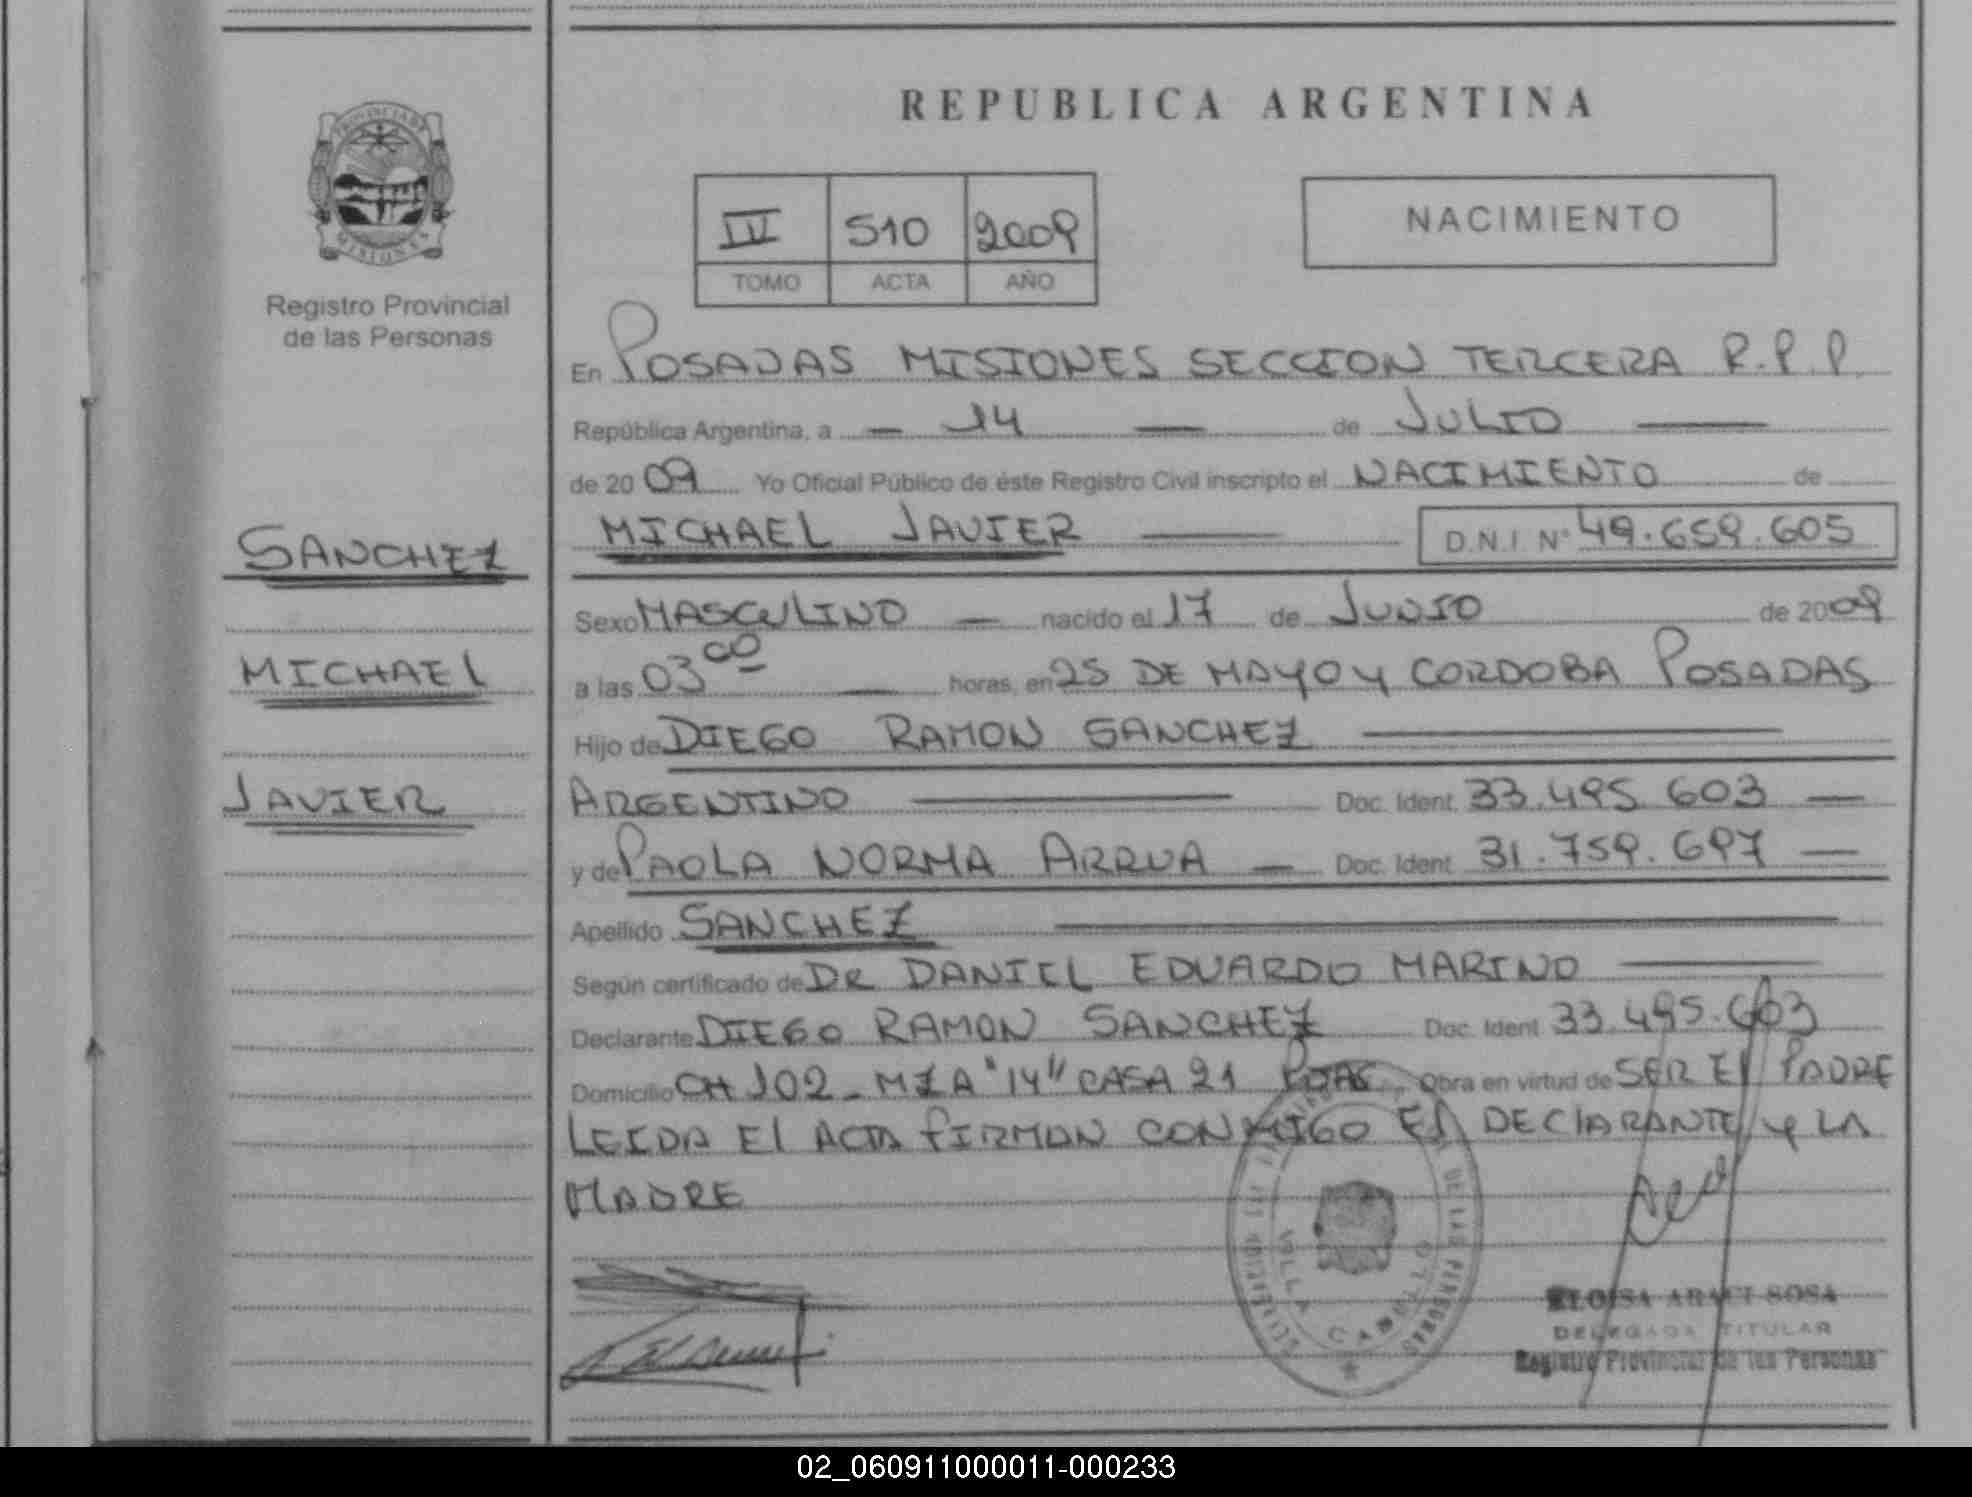 REPUBLICA ARGENTINA
PROVINCIA DE
MISIONES
Registro Provincial
de las Personas
III 510 2009
TOMO ACTA AÑO
NACIMIENTO
En POSADAS MISIONES SECCION TERCERA R.P.P.
República Argentina, a - 14 — de JULIO —
de 2009 Yo Oficial Público de éste Registro Civil inscripto el NACIMIENTO de
MICHAEL JAVIER — D.N.I. N° 49.659.605
SANCHEZ
MICHAEL
JAVIER
Sexo MASCULINO — nacido el 17 de JUNIO de 2009
a las 03 00 — horas, en 25 DE MAYO Y CORDOBA POSADAS
Hijo de DIEGO RAMON SANCHEZ —
ARGENTINO — Doc. Ident. 33.495.603 —
y de PAOLA NORMA ARRUA — Doc. Ident. 31.759.697 —
Apellido SANCHEZ —
Según certificado de DR DANIEL EDUARDO MARINO —
Declarante DIEGO RAMON SANCHEZ Doc. Ident. 33.495.603
Domicilio CH 102 - MZA "14" CASA 21 PDAS Obra en virtud de SER El PADRE
LEIDA El ACTA FIRMAN CONMIGO El DEClARANTE y LA
MADRE
DE LAS PERSONAS
VILLA CABELLO
ELOISA ARACI SOSA
DELEGADA TITULAR
Registro Provincial de las Personas
02_060911000011-000233